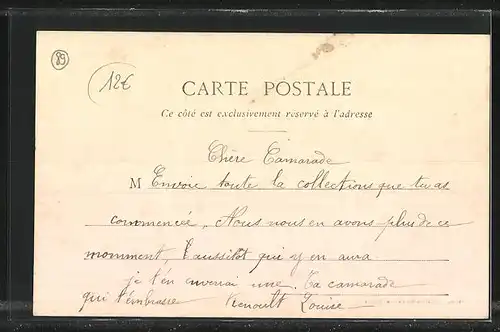 89
12€
CARTE POSTALE
Ce côté est exclusivement réservé à l'adresse
Chère Camarade
M Envoie toute la collections que tu as
commencée, Nous nous en avons plus de ce
momment, aussitot qui y en aura
je t'en enverai une. Ta camarade
qui t'embrasse Renoult Louise